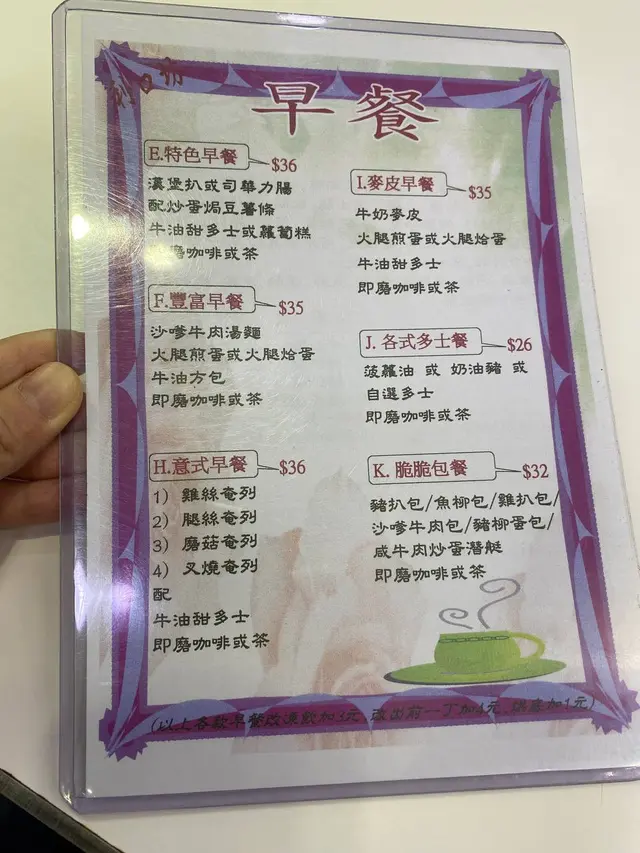 早餐
E.特色早餐 $36
漢堡扒或司華力腸
配炒蛋焗豆薯條
牛油甜多士或蘿蔔糕
磨咖啡或茶
F.豐富早餐 $35
沙嗲牛肉湯麵
火腿煎蛋或火腿烚蛋
牛油方包
即磨咖啡或茶
H.意式早餐 $36
1) 雞絲奄列
2) 腿絲奄列
3) 磨菇奄列
4) 叉燒奄列
配
牛油甜多士
即磨咖啡或茶
I.麥皮早餐 $35
牛奶麥皮
火腿煎蛋或火腿烚蛋
牛油甜多士
即磨咖啡或茶
J. 各式多士餐 $26
菠蘿油 或 奶油豬 或
自選多士
即磨咖啡或茶
K. 脆脆包餐 $32
豬扒包/魚柳包/雞扒包/
沙嗲牛肉包/豬柳蛋包/
咸牛肉炒蛋潛艇
即磨咖啡或茶
(以上各款早餐改凍飲加3元 改出前一丁加4元
加1元)